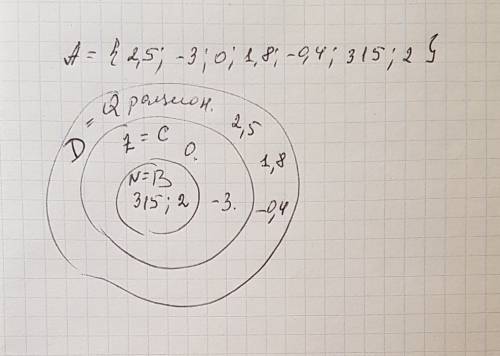 A = { 2,5; -3; 0; 1,8; -0,4; 315; 2 }
D = Q рацион.
Z = C
2,5
0.
1,8
N = B
315; 2
-3.
-0,4